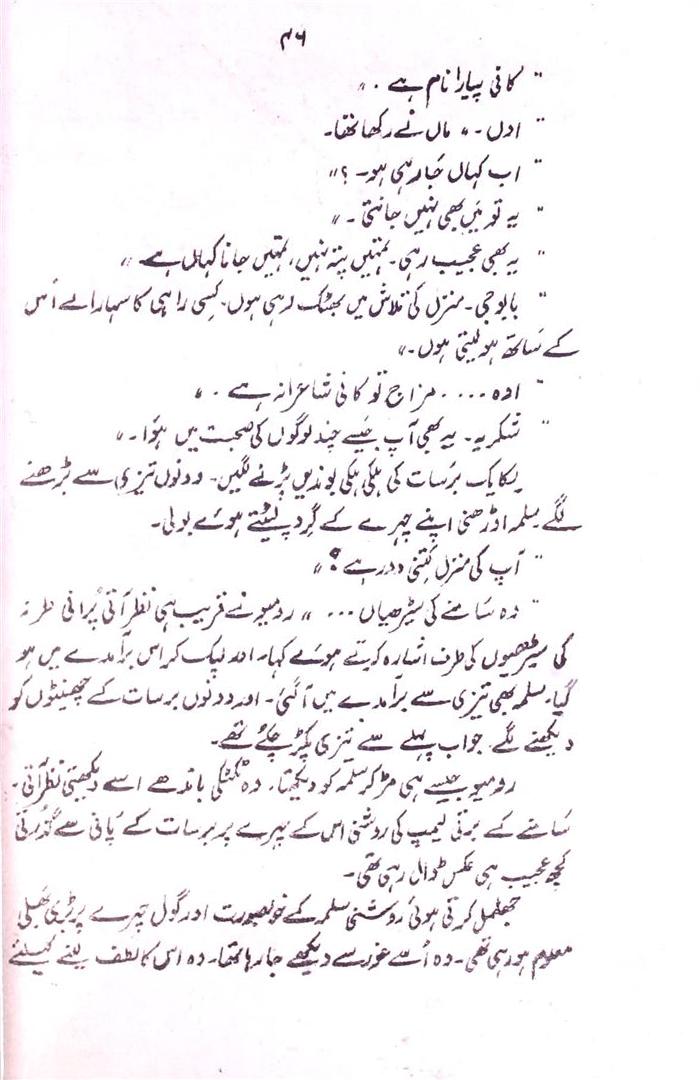 ۴۶
" کافی پیارا نام ہے ۔ "
" اوں ۔" ماں نے رکھا تھا۔
" اب کہاں جا رہی ہو۔ ؟"
" یہ تو میں بھی نہیں جانتی ۔ "
" یہ بھی عجیب رہی۔ تمہیں پتہ نہیں، تمہیں جانا کہاں ہے۔ "
" بابوجی۔ منزل کی تلاش میں بھٹک رہی ہوں۔ کسی راہی کا سہارا لے اُس
کے ساتھ ہو لیتی ہوں۔"
" اوہ .... مزاج تو کافی شاعرانہ ہے ۔ "
" شکریہ۔ یہ بھی آپ جیسے چند لوگوں کی صحبت میں ہوُا ۔"
یکایک برسات کی ہلکی ہلکی بوندیں پڑنے لگیں۔ دونوں تیزی سے بڑھنے
لگے۔ سلمہ اوڑھنی اپنے چہرے کے گرد لپیٹتے ہوئے بولی۔
" آپ کی منزل کتنی دور ہے ؟ "
" وہ سامنے کی سیڑھیاں ... " رومیو نے قریب ہی نظر آتی پُرانی طرز
کی سیڑھیوں کی طرف اشارہ کرتے ہوئے کہا۔ اور لپک کر اس برآمدے میں ہو
گیا۔ سلمہ بھی تیزی سے برآمدے میں آ گئی۔ اور دونوں برسات کے چھینٹوں کو
دیکھنے لگے۔ جو اب پہلے سے تیزی پکڑ چکے تھے۔
رومیو جیسے ہی مڑ کر سلمہ کو دیکھتا۔ وہ ٹکٹکی باندھے اسے دیکھتی نظر آتی۔
سامنے کے برقی لیمپ کی روشنی اس کے چہرے پر برسات کے پانی سے گذرتی
کچھ عجیب ہی عکس ڈال رہی تھی۔
جھلمل کرتی ہوئی روشنی سلمہ کے خوبصورت اور گول چہرے پر بڑی بھلی
معلوم ہو رہی تھی۔ وہ اُسے غور سے دیکھے جا رہا تھا۔ وہ اس کا لطف لینے کیلئے